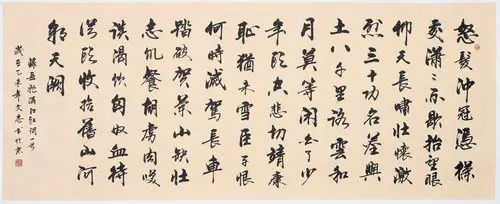 怒髮沖冠憑欄
處瀟瀟雨歇抬望眼
仰天長嘯壯懷激
烈三十功名塵與
土八千里路雲和
月莫等閒白了少
年頭空悲切靖康
恥猶未雪臣子恨
何時滅駕長車
踏破賀蘭山缺壯
志飢餐胡虜肉笑
談渴飲匈奴血待
從頭收拾舊山河
朝天闕
錄岳飛滿江紅詞一首
乙未年文志書於京